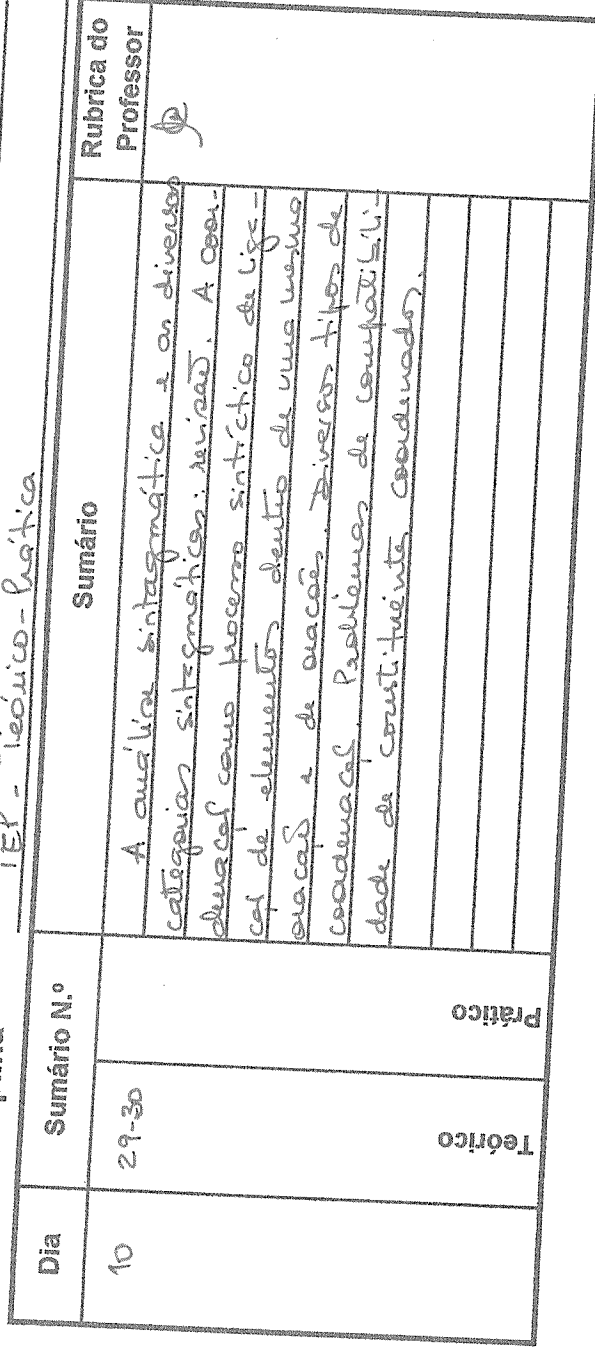 IEP - Teórico-Prática
Dia
Sumário N.º
Sumário
Rubrica do
Professor
10
29-30
Teórico
Prático
A análise sintagmática e as diversas
categorias sintagmáticas: revisão. A coor-
denação como processo sintáctico de liga-
ção de elementos dentro de uma mesma
oração e de orações. Diversos tipos de
coordenação. Problemas de compatibili-
dade de constituintes coordenados.